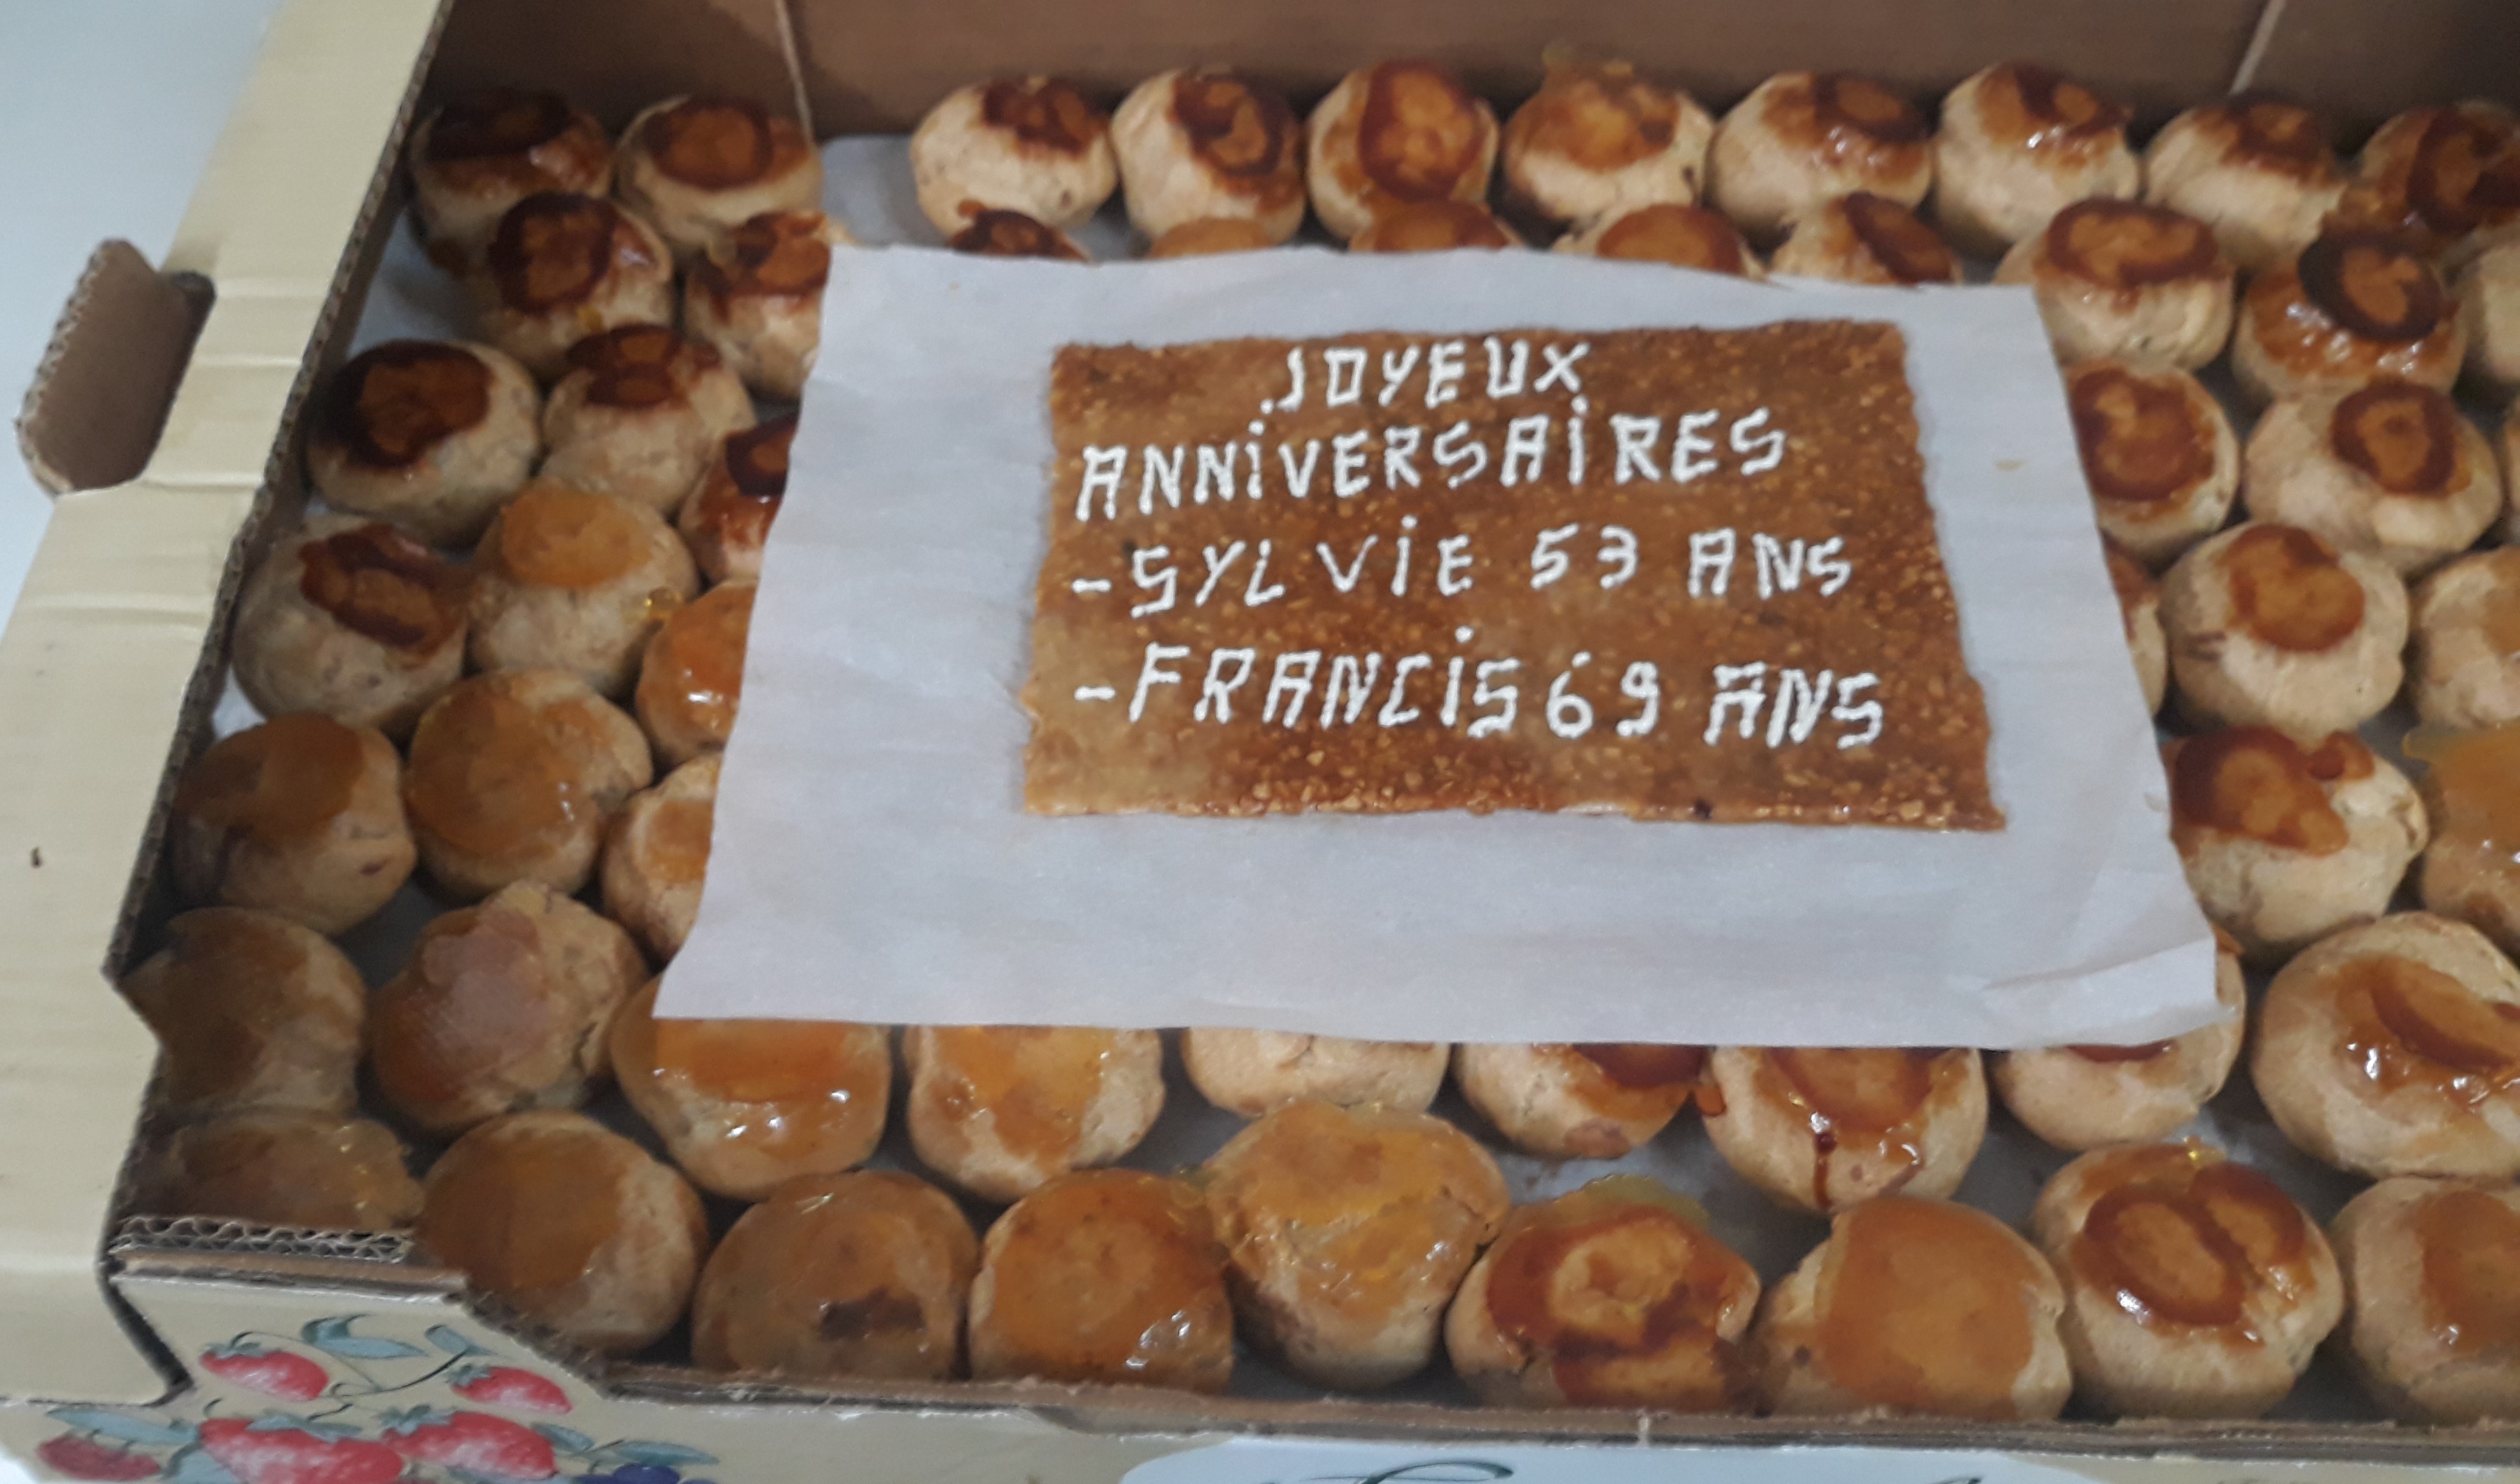 JOYEUX
ANNiVERSAiRES
-SYLViE 53 ANS
-FRANCiS 69 ANS